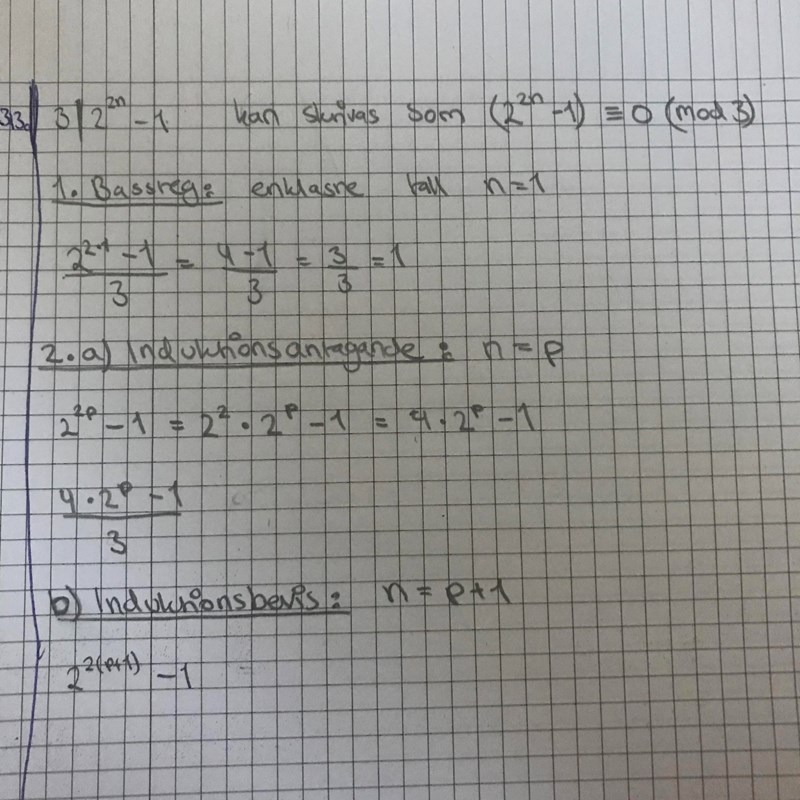 33. 3|2^{2n} - 1 kan skrivas som (2^{2n} - 1) ≡ 0 (mod 3)
1. Bassteg: enklaste fall n=1
\frac{2^{2·1} - 1}{3} = \frac{4-1}{3} = \frac{3}{3} = 1
2. a) Induktionsantagande: n = p
2^{2p} - 1 = 2^2 · 2^p - 1 = 4 · 2^p - 1
\frac{4 · 2^p - 1}{3}
b) Induktionsbevis: n = p+1
2^{2(p+1)} - 1